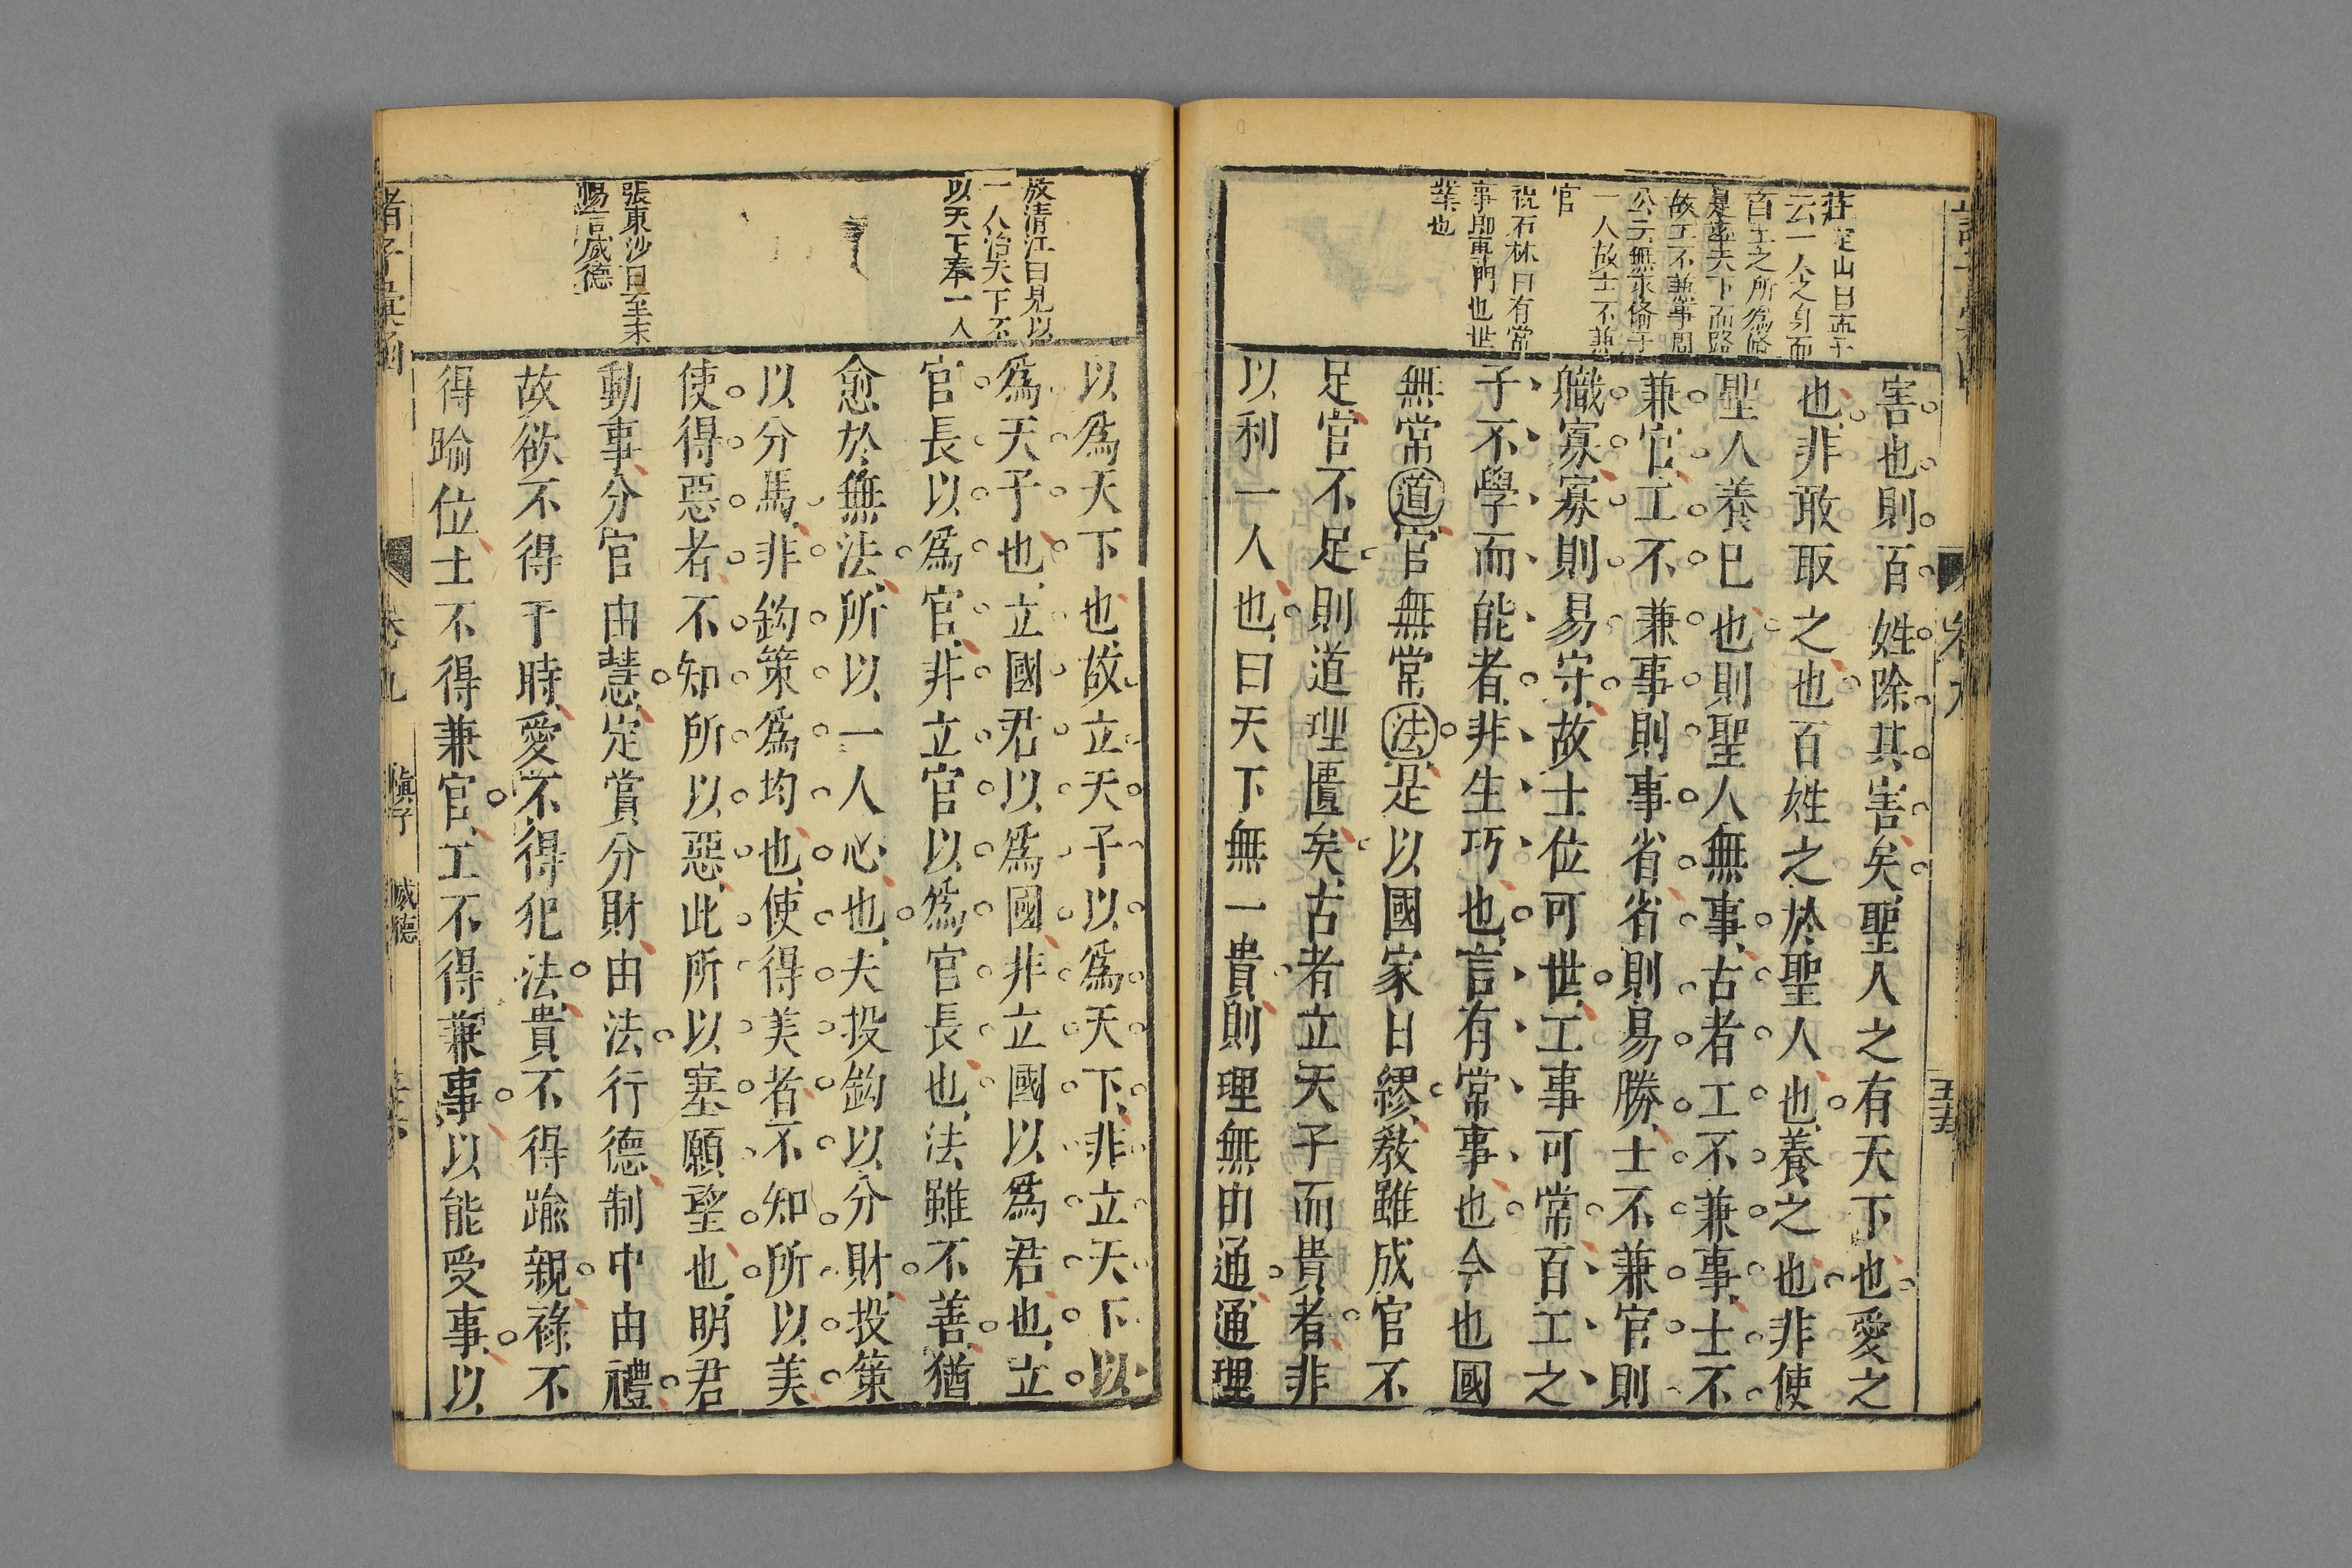 莊定山曰孟子
云一人之身而
百工之所爲備
是率天下而路
故工不兼事周
公云無求備于
一人故士不兼
官
祝石林曰有常
事即專門也世
業也
害也則百姓除其害矣聖人之有天下也愛之
也非敢取之也百姓之於聖人也養之也非使
聖人養已也則聖人無事古者工不兼事士不
兼官工不兼事則事省省則易勝士不兼官則
職寡寡則易守故士位可世工事可常百工之
子不學而能者非生巧也言有常事也今也國
無常道官無常法是以國家日繆教雖成官不
足官不足則道理匱矣古者立天子而貴者非
以利一人也曰天下無一貴則理無由通通理
卷九
五十五
放清江曰見以
一人治天下不
以天下奉一人
張東沙曰至末
暢言威德
以爲天下也故立天子以爲天下非立天下以
爲天子也立國君以爲國非立國以爲君也立
官長以爲官非立官以爲官長也法雖不善猶
愈於無法所以一人心也夫投鈎以分財投策
以分馬非鈎策爲均也使得美者不知所以美
使得惡者不知所以惡此所以塞願望也明君
動事分官由慧定賞分財由法行德制中由禮
故欲不得于時愛不得犯法貴不得踰親祿不
得踰位士不得兼官工不得兼事以能受事以
諸子彙函
卷九
慎子
威德